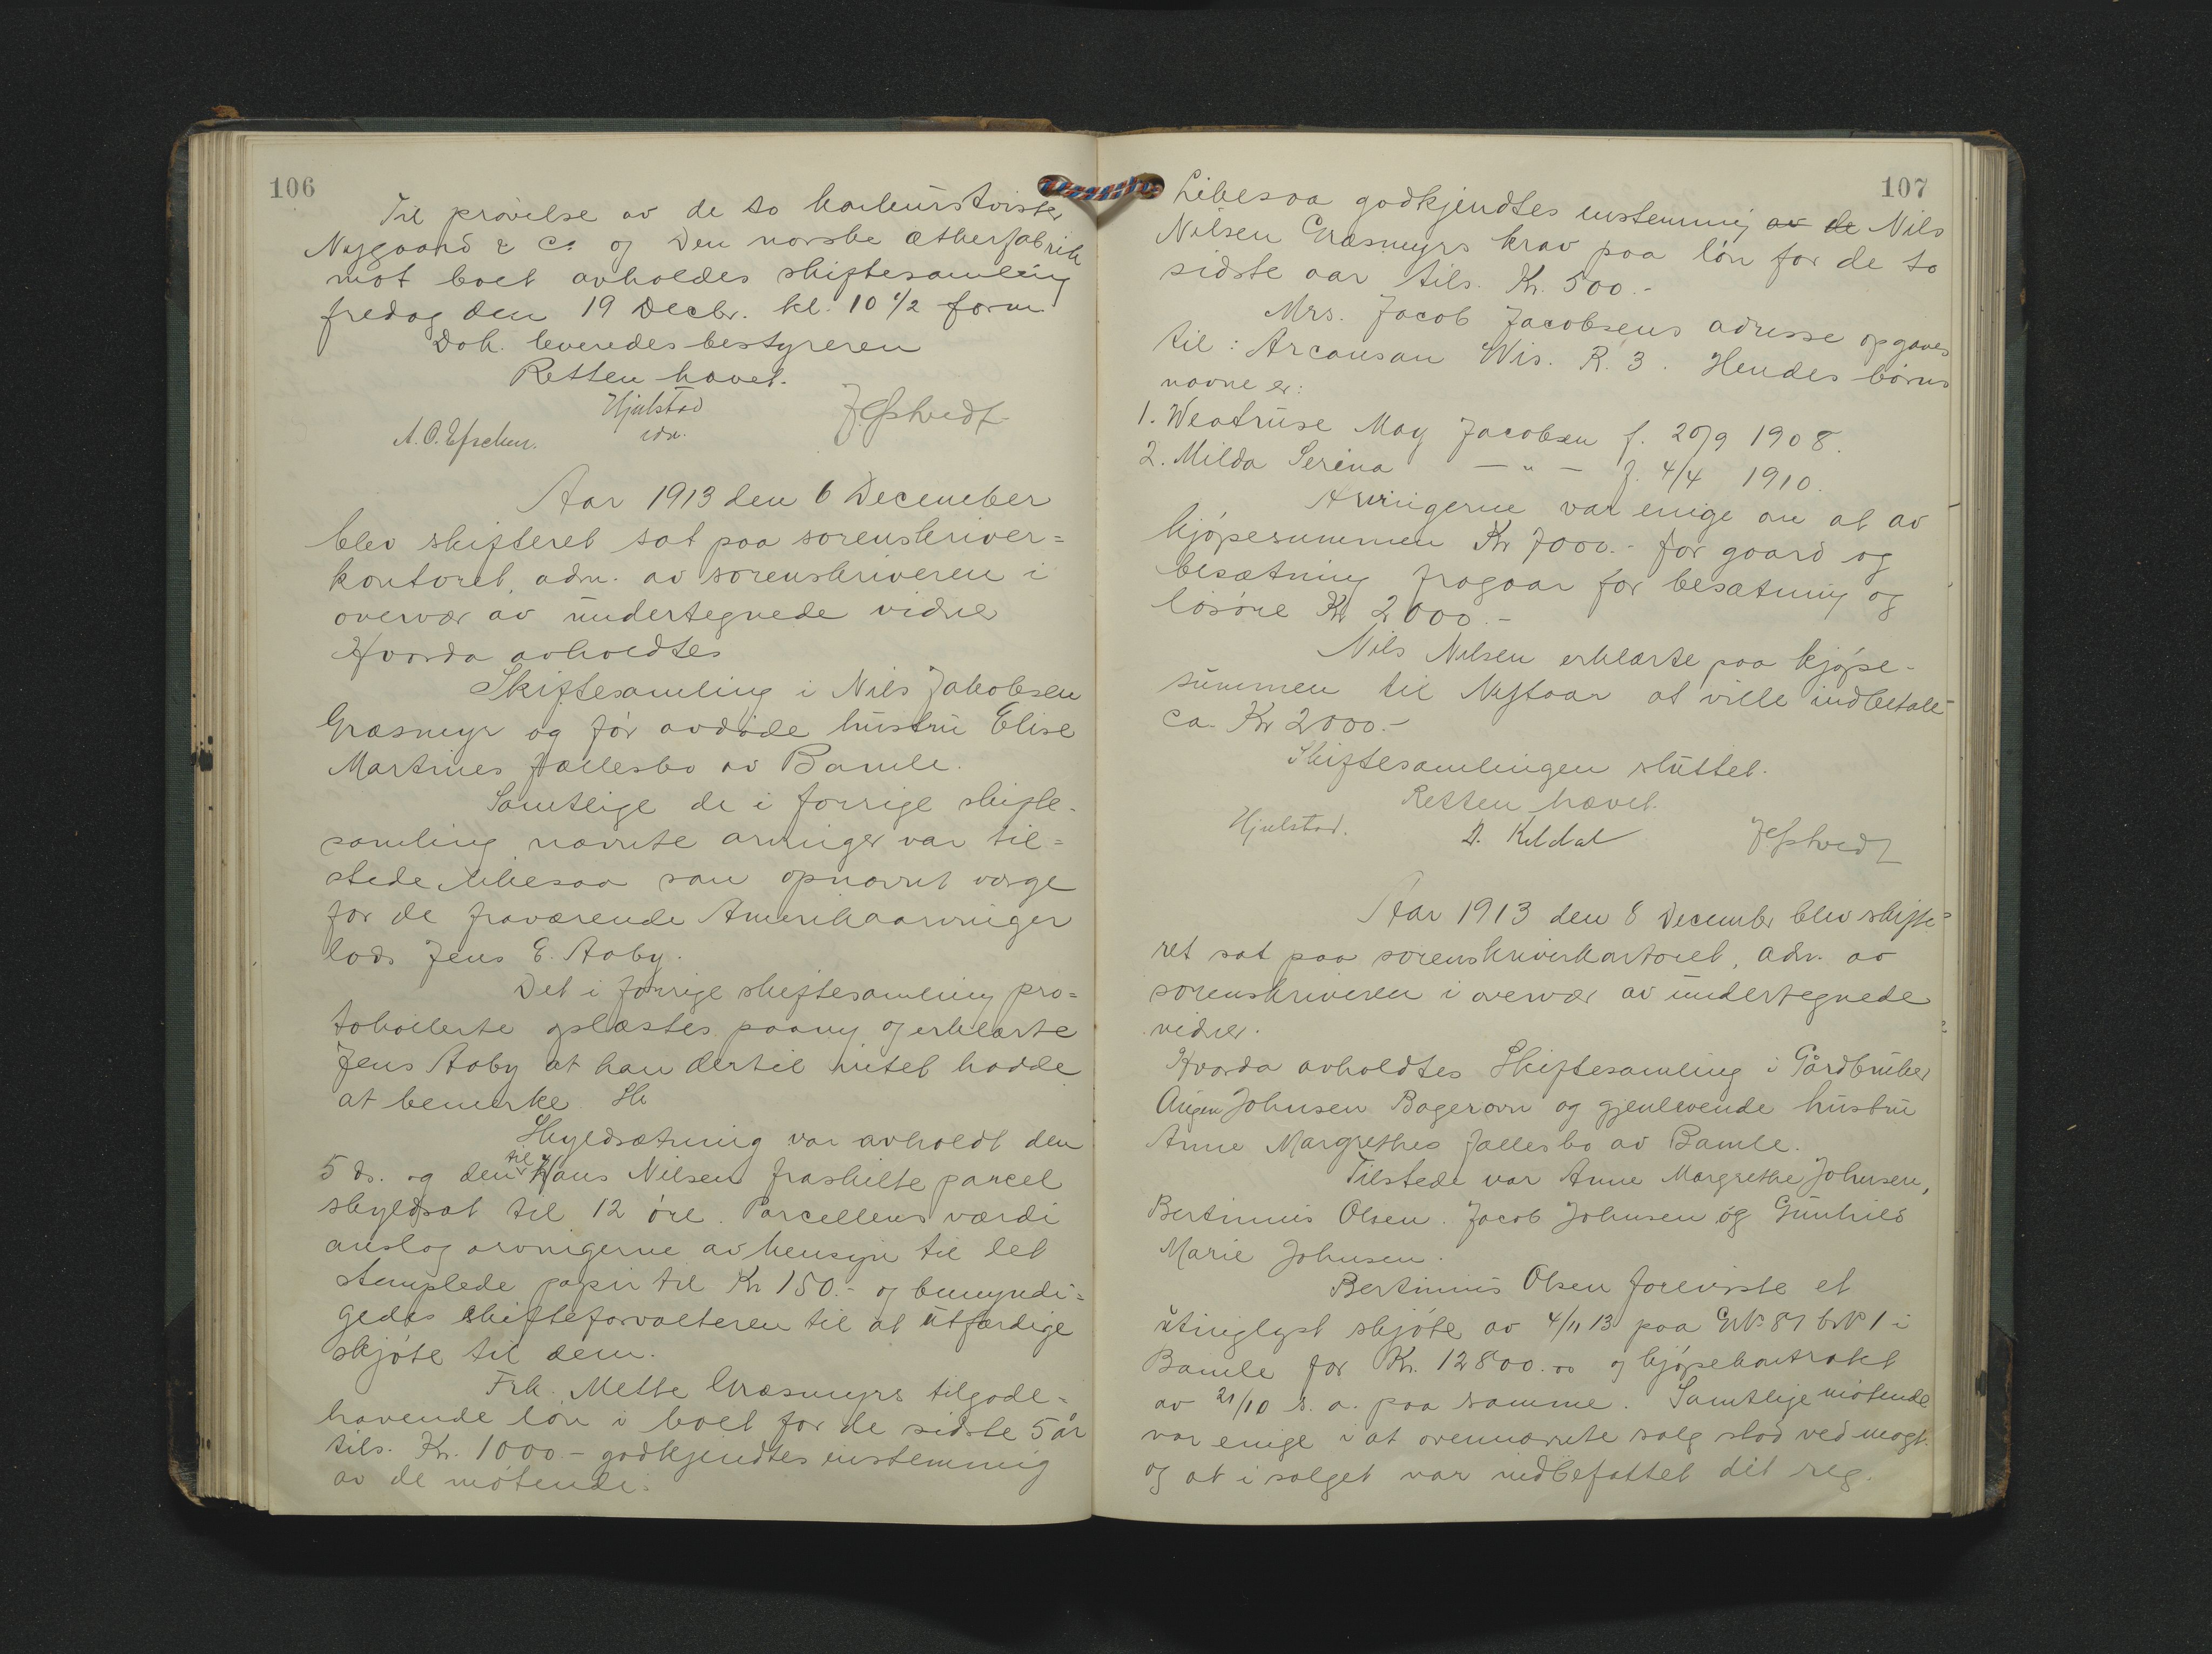 106
Til prøvelse av de to konkurstvister
Nygaard & Co og Den norske ætherfabrik
mot boet avholdes skiftesamling
fredag den 19 Decbr. kl. 10 1/2 form
Dok. leveredes bestyreren
Retten hævet.
Hjulstad
cdr.
Aar 1913 den 6 December
blev skifteret sat paa sorenskriver=
kontoret, adm. av sorenskriveren i
overvær av undertegnede vidner
Hvorda avholdtes
Skiftesamling i Nils Jakobsen
Græsmyr og før avdøde hustru Elise
Martines fællesbo av Bamle.
Samtlige de i forrige skifte-
samling nævnte arvinger var til=
stede likesaa som opnævnt værge
for de fraværende Amerikaarvinger
lods Jens E. Aaby.
Det i forrige skiftesamling pro=
tokollerte oplæstes paany og erklærte
Jens Aaby at han dertil intet hadde
at bemerke. Sk
Skyldsætning var avholdt den
5 ds. og den til Hans Nilsen fraskilte parcel
skyldsat til 12 øre. Parcellens værdi
anslog arvingerne av hensyn til det
stemplede papir til Kr 150.- og bemyndi=
gedes skifteforvalteren til at utfærdige
skjøte til dem.
Frk. Mette Græsmyrs tilgode-
havende løn i boet for de sidste 5 år
tils. Kr. 1000.- godkjendtes enstemmig
av de møtende.
107
Likesaa godkjendtes enstemmig av de Nils
Nilsen Græsmyrs krav paa løn for de to
sidste aar tils. Kr. 500.-
Mrs. Jacob Jacobsens adresse opgaves
til: Arcansan Wis. R. 3. Hendes børns
navne er:
1. Weatruse May Jacobsen f. 20/9 1908.
2. Milda Serina — " — f. 4/4 1910.
Arvingerne var enige om at av
kjøpesummen Kr 7000.- for gaard og
besætning fragaar for besætning og
løsøre Kr 2000.-
Nils Nilsen erklærte paa kjøpe-
summen til Nyttaar at ville indbetale
ca. Kr 2000.-
Skiftesamlingen sluttet.
Retten hævet.
Hjulstad. D. Kildal
Aar 1913 den 8 December blev skifte=
ret sat paa sorenskriverkontoret, adm. av
sorenskriveren i overvær av undertegnede
vidner.
Hvorda avholdtes Skiftesamling i Gårdbruker
Johnsen Bagerovn og gjenlevende hustru
Anne Margrethes fællesbo av Bamle.
Tilstede var Anne Margrethe Johnsen,
Bertinius Olsen. Jacob Johnsen og Gunhild
Marie Johnsen.
Bertinius Olsen foreviste et
utinglyst skjøte av 4/11 13 paa GNo 87 brNo 1 i
Bamle for Kr. 12800.00 og kjøpekontrakt
av 21/10 s. a. paa samme. Samtlige møtende
var enige i at ovennævnte salg stod ved magt
og at i salget var indbefattet det reg.